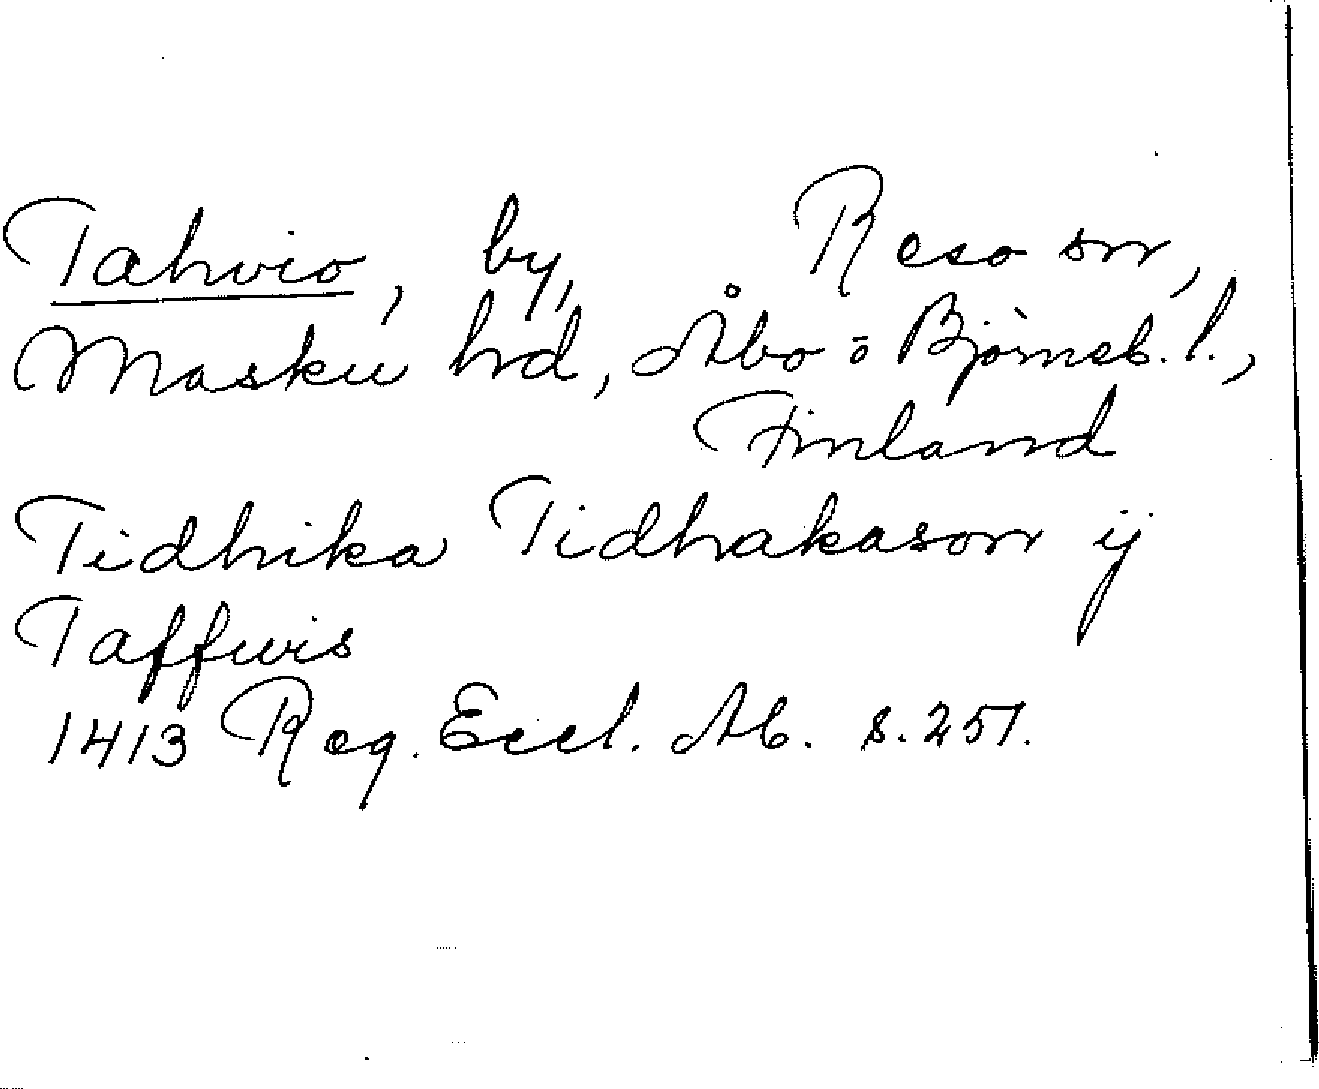 Tahvio, by, Reso sn,
Masku hd, Åbo o Björneb. l.,
Finland
Tidhika Tidhakason ij
Taffwis
1413 Reg. Eccl. Ab. s. 251.